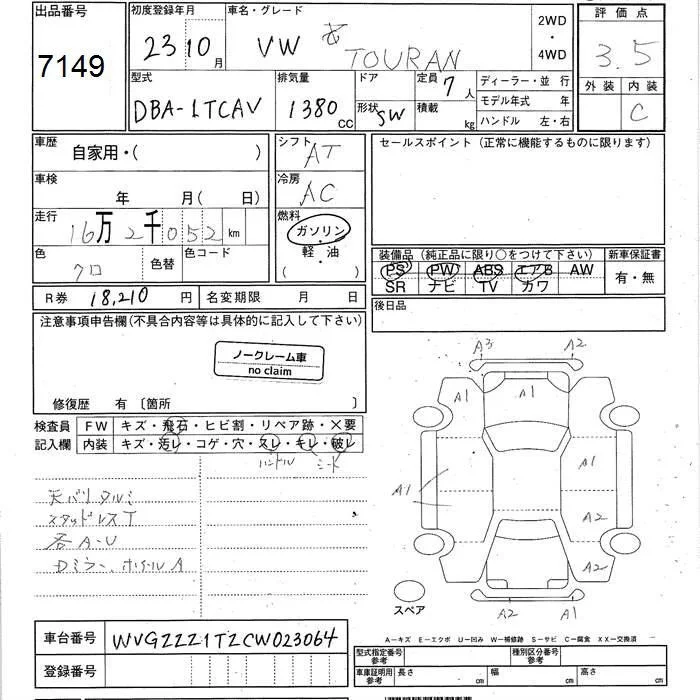 出品番号
7149
初度登録年月
23 10月
車名・グレード
VW TOURAN
2WD
・
4WD
評価点
3.5
外装 内装
C
型式
DBA-1TCAV
排気量
1380 CC
ドア
形状 SW
定員 7人
積載 kg
ディーラー・並行
モデル年式 年
ハンドル 左・右
車歴
自家用・( )
シフト
AT
セールスポイント (正常に機能するものに限ります)
車検
年 月( 日)
冷房
AC
走行
16万2千052km
燃料
ガソリン
・
軽・油
( )
色
クロ
色替
色コード
装備品 (純正品に限り○をつけて下さい)
PS PW ABS エアB AW
SR ナビ TV カワ
新車保証書
有・無
R券 18,210 円
名変期限 月 日
後日品
注意事項申告欄(不具合内容等は具体的に記入して下さい)
ノークレーム車
no claim
修復歴 有 〔箇所 〕
検査員
記入欄
FW キズ・飛石・ヒビ割・リペア跡・×要
内装 キズ・汚レ・コゲ・穴・スレ・キレ・破レ
ハンドル シート
天バリタルミ
スタッドレスT
各A-U
Dミラー、ホイールA
A3 A2
A1
A1
A1
A2
A1
A2
A2 A1
スペア
A-キズ E-エクボ U-凹み W-補修跡 S-サビ C-腐食 XX-交換済
車台番号
WVGZZZ1TZCW023064
登録番号
型式指定番号
参考
種別区分番号
参考
車庫証明用
参考
長さ cm
幅 cm
高さ cm